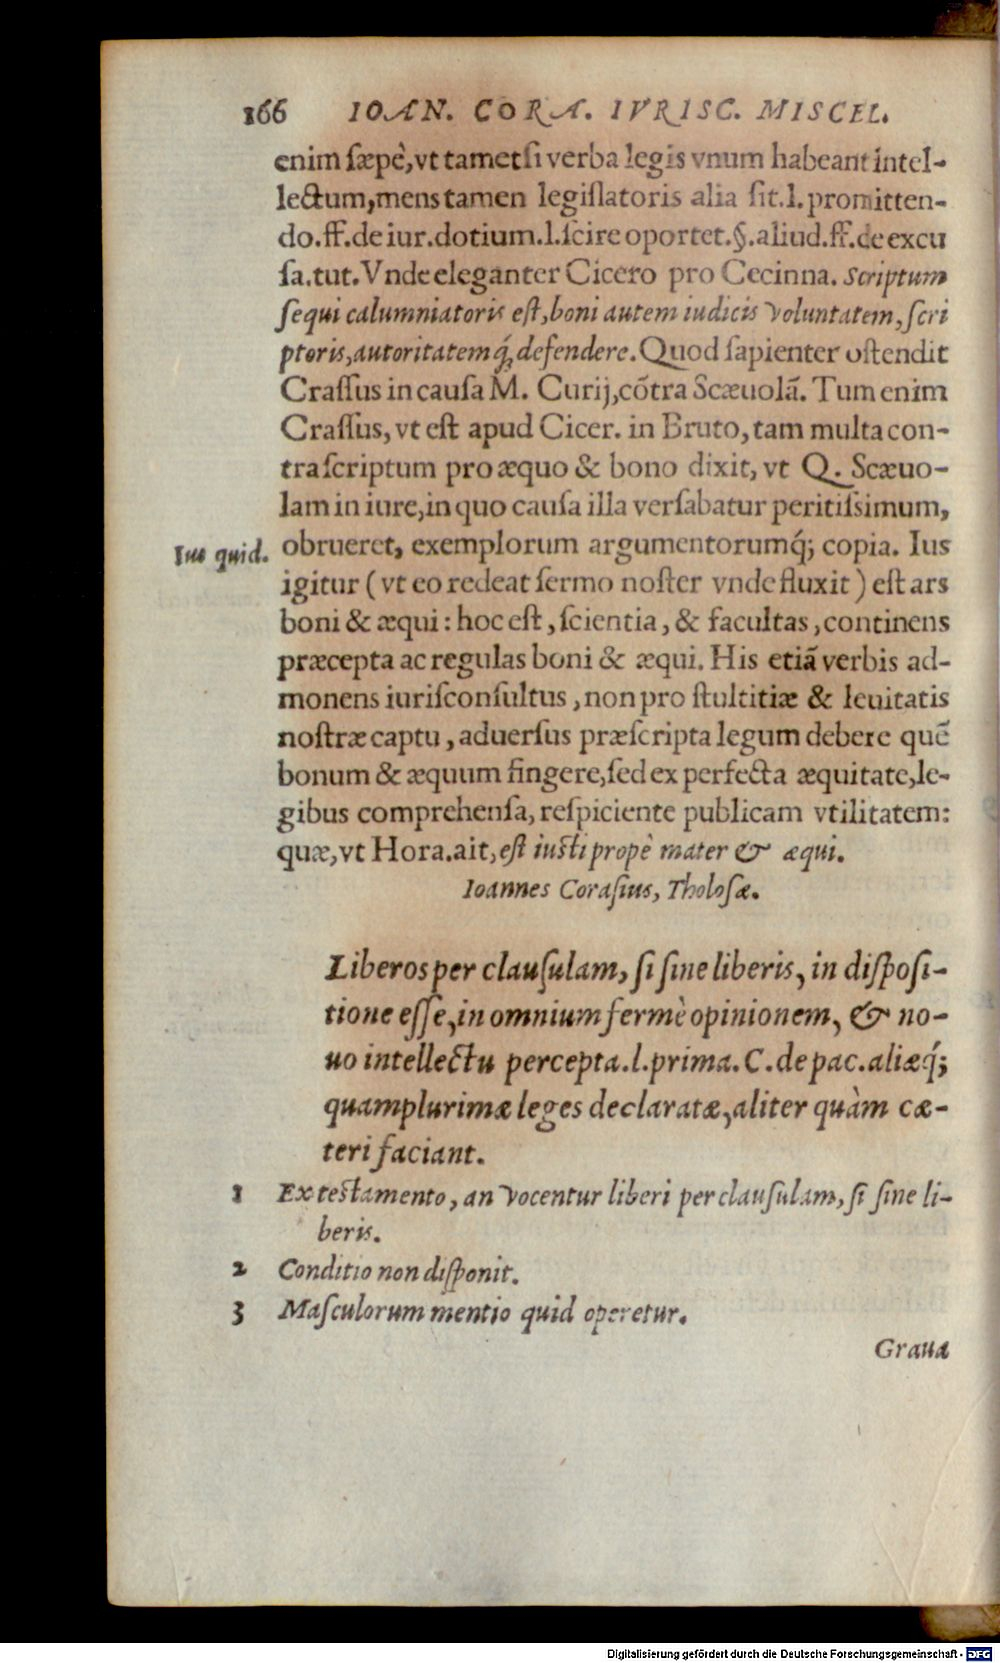 166 IOAN. CORA. IVRISC. MISCEL.
enim sæpè, vt tametsi verba legis vnum habeant intel-
lectum, mens tamen legislatoris alia sit. l. promitten-
do. ff. de iur. dotium. l. scire oportet. §. aliud. ff. de excu
sa. tut. Vnde eleganter Cicero pro Cecinna. Scriptum
sequi calumniatoris est, boni autem iudicis voluntatem, scri
ptoris, autoritatemq́; defendere. Quod sapienter ostendit
Crassus in causa M. Curij, cõtra Scæuolã. Tum enim
Crassus, vt est apud Cicer. in Bruto, tam multa con-
tra scriptum pro æquo & bono dixit, vt Q. Scæuo-
lam in iure, in quo causa illa versabatur peritissimum,
obrueret, exemplorum argumentorumq́; copia. Ius
Ius quid.
igitur ( vt eo redeat sermo noster vnde fluxit ) est ars
boni & æqui : hoc est, scientia, & facultas, continens
præcepta ac regulas boni & æqui. His etiã verbis ad-
monens iurisconsultus, non pro stultitiæ & leuitatis
nostræ captu, aduersus præscripta legum debere quẽ
bonum & æquum fingere, sed ex perfecta æquitate, le-
gibus comprehensa, respiciente publicam vtilitatem:
quæ, vt Hora. ait, est iusti propè mater & æqui.
Ioannes Corasius, Tholosæ.
Liberos per clausulam, si sine liberis, in disposi-
tione esse, in omnium fermè opinionem, & no-
uo intellectu percepta. l. prima. C. de pac. aliæq́;
quamplurimæ leges declaratæ, aliter quàm cæ-
teri faciant.
1 Ex testamento, an vocentur liberi per clausulam, si sine li-
beris.
2 Conditio non disponit.
3 Masculorum mentio quid operetur.
Graua
Digitalisierung gefördert durch die Deutsche Forschungsgemeinschaft - DFG